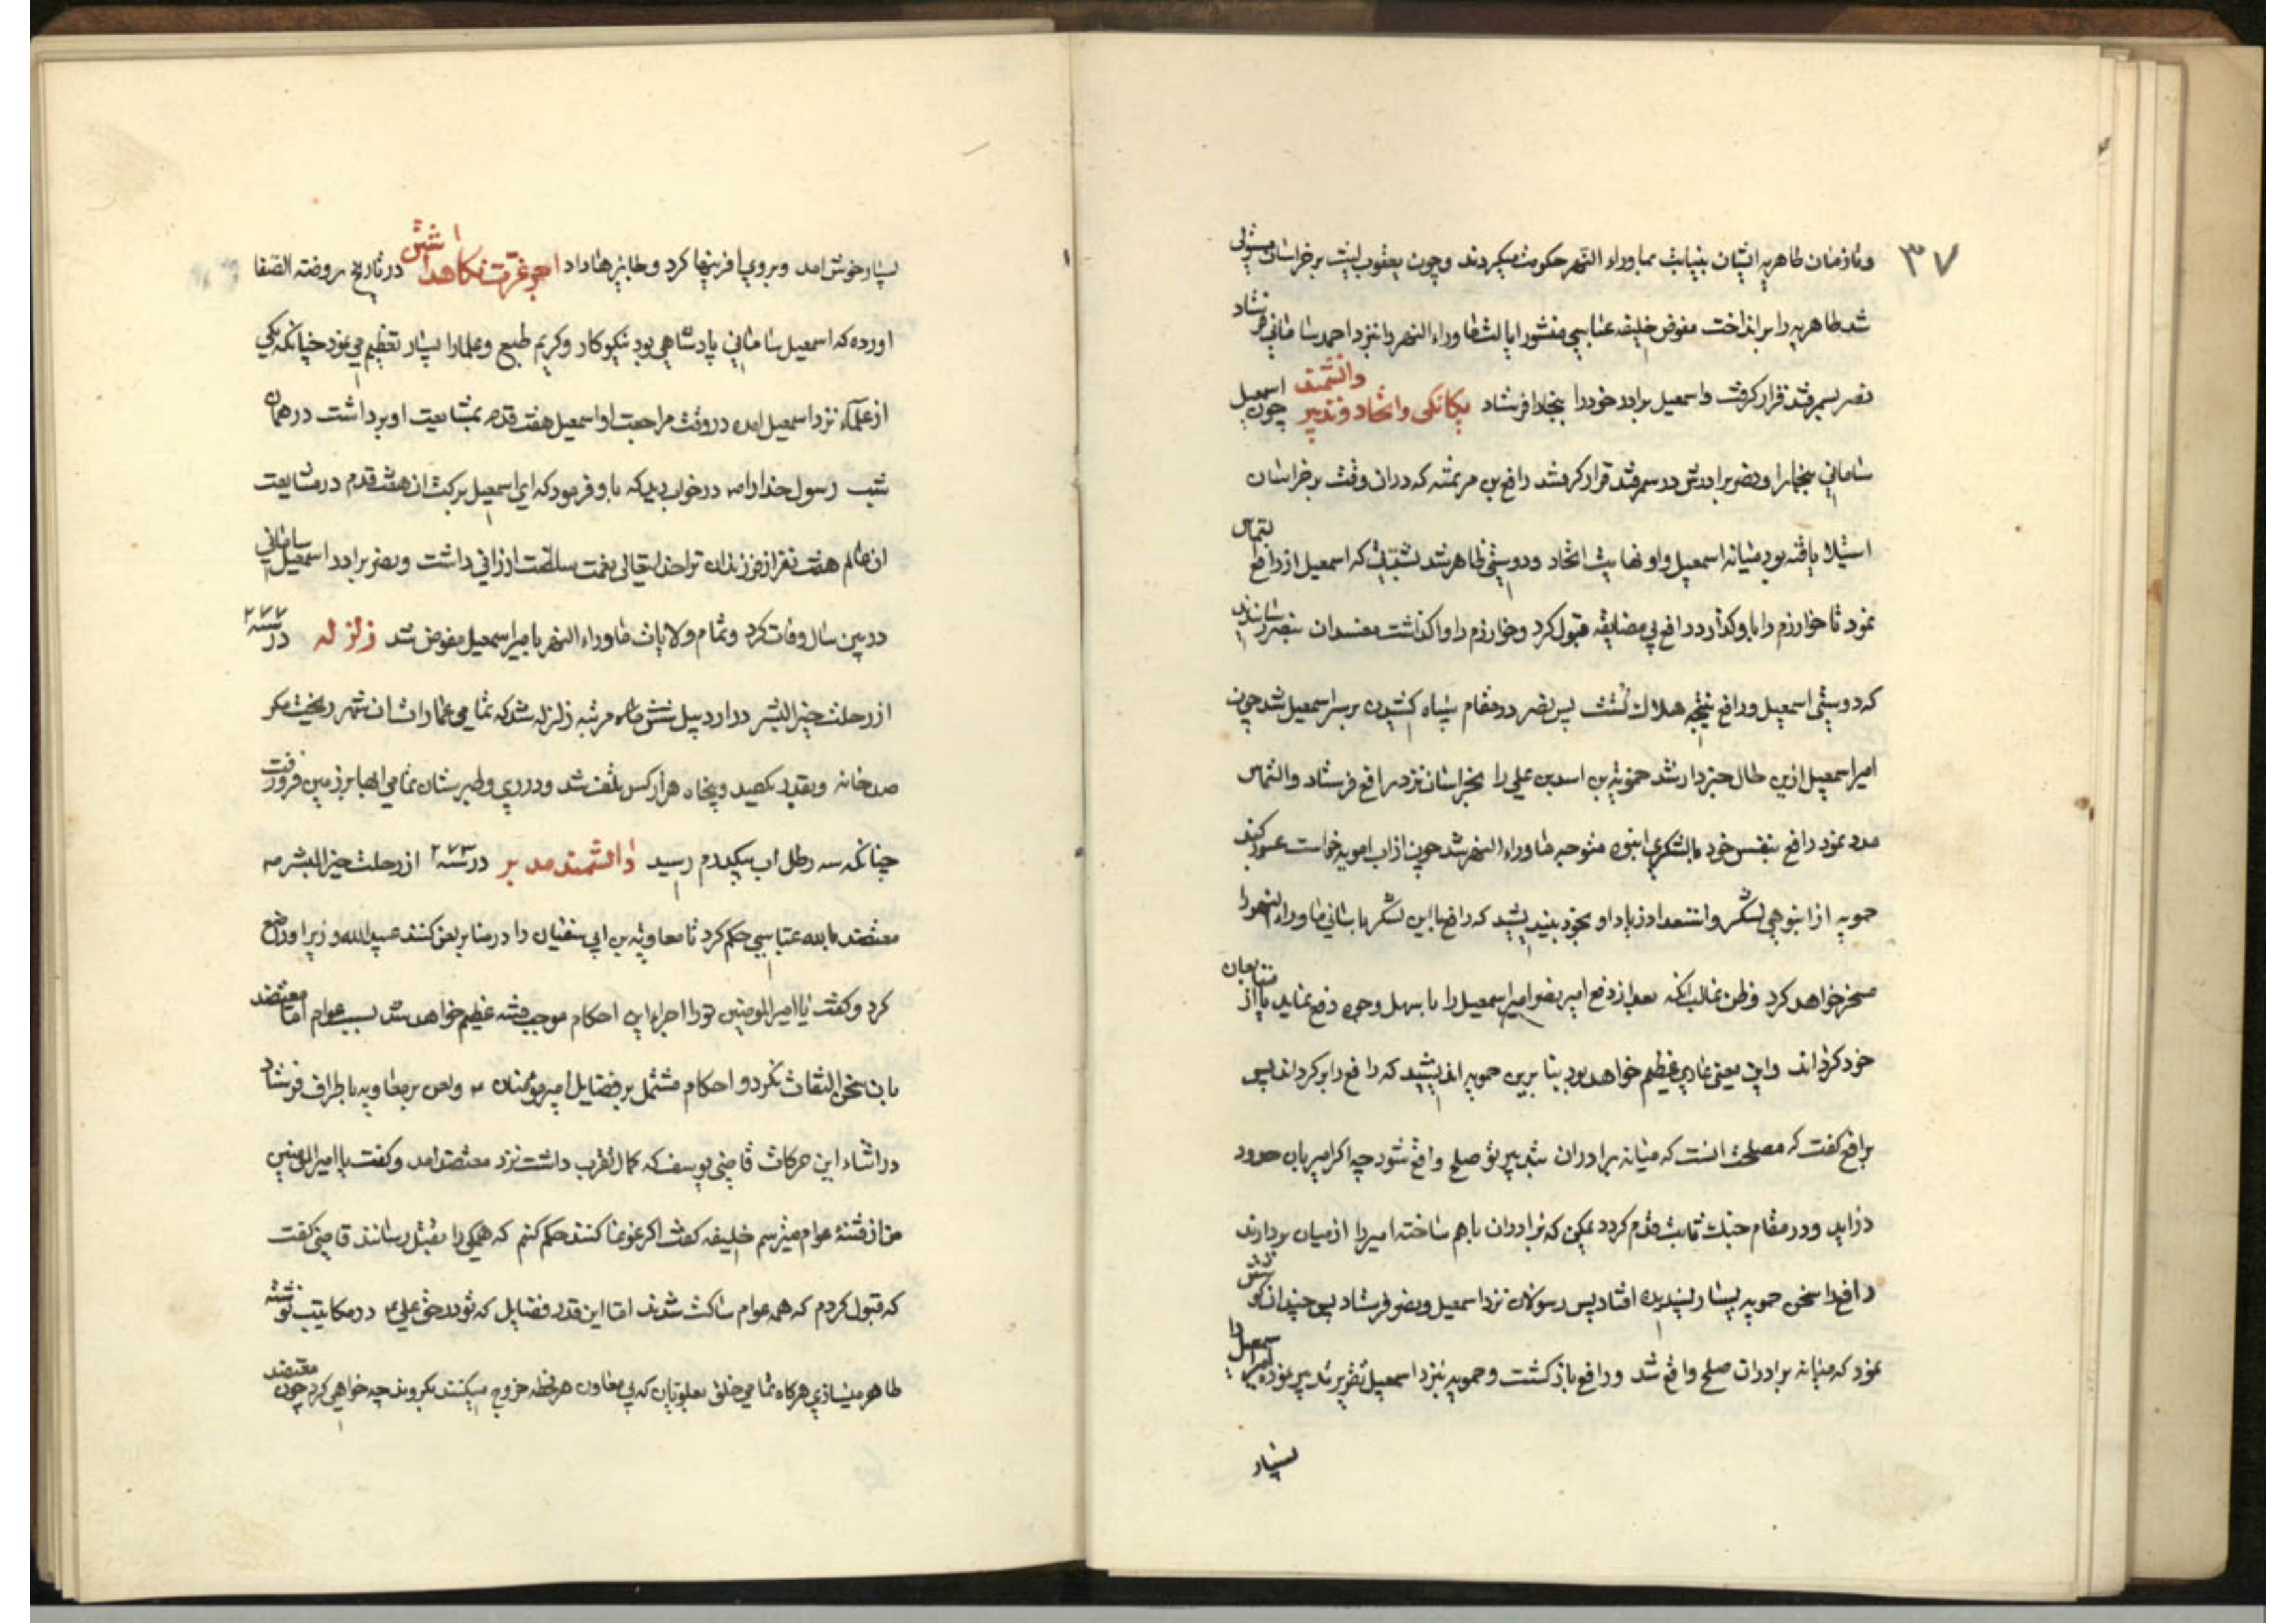 ۳۷
و تا زمان طاهریه ایشان بنیابت بماوراء النهر حکومت میکردند و چون یعقوب لیث بر خراسان مستولی
شد طاهریه را برانداخت مفوض خلیفه عباسی منشور ایالت ماوراء النهر را بنزد احمد سامانی فرستاد
نصر بسمرقند قرار گرفت و اسمعیل برادر خود را ببخارا فرستاد یکانکی و اتحاد و تدبیر دانشمند چون اسمعیل
سامانی ببخارا و نصر برادرش در سمرقند قرار گرفتند رافع بن هرثمه که در ان وقت بر خراسان
استیلا یافته بود میانه اسمعیل و او نهایت اتحاد و دوستی ظاهر شد که اسمعیل از رافع التماس
نمود تا خوارزم را باو کذارد رافع بی مضایقه قبول کرد و خوارزم را واکذاشت مفسدان بنصر رسانیدند
که دوستی اسمعیل و رافع نتیجه هلاک تست پس نصر در مقام سپاه کشیدن بر سر اسمعیل شد چون
امیر اسمعیل ازین حال خبردار شد حمویه بن اسد بن علی را بخراسان نزد رافع فرستاد و التماس
مدد نمود رافع بنفس خود با لشکری انبوه متوجه ماوراء النهر شد چون از اب امویه خواست عبور کند
حمویه از انبوهی لشکر و استعداد زیاد او بخود بیندیشید که رافع با این لشکر باسانی ماوراء النهر را
مسخر خواهد کرد و ظن غالب انکه بعد از دفع امیر نصر امیر اسمعیل را باسهل وجوه دفع نماید یا از متابعان
خود کرداند و این معنی عاری عظیم خواهد بود بنا برین حمویه اندیشید که رافع را برکرداند پس
برافع گفت که مصلحت انست که میانه برادران بتدبیر تو صلح واقع شود چه اکر امیر باین حدود
دراید و در مقام جنک ثابت قدم کردد یمکن که برادران باهم ساخته امیر را از میان بردارند
رافع را سخن حمویه بسیار پسندیده افتاد پس رسولان نزد اسمعیل و نصر فرستاد پس چندان کوشش
نمود که میانه برادران صلح واقع شد و رافع بازکشت و حمویه بنزد اسمعیل تقریر تدبیر نموده امیر اسمعیل را
بسیار
بسیار خوش امد و بروی افرینها کرد و جایزها داد اجر عزت نکاه داشتن در تاریخ روضة الصفا
اورده که اسمعیل سامانی پادشاهی بود نیکوکار و کریم طبع و علما را بسیار تعظیم می نمود چنانکه یکی
از علماء نزد اسمعیل امده در وقت مراجعت او اسمعیل هفت قدم بمشایعت او برداشت در همان
شب رسول خدا را ص در خواب دید که باو فرمود که ای اسمعیل برکت ان هفت قدم در مشایعت
ان عالم هفت نفر از فرزندان ترا خدایتعالی نعمت سلطنت ارزانی داشت و نصر برادر اسمعیل سامانی
در همین سال وفات کرد و تمام ولایات ماوراء النهر بامیر اسمعیل مفوض شد زلزله در سنه ۲۷۷
از رحلت خیر البشر در اردبیل شش مرتبه زلزله شد که تمامی عمارات ان شهر ریخت مکر
صد خانه و بقدر یکصد و پنجاه هزار کس تلف شد و در ری و طبرستان تمامی ابها بزمین فرو رفت
چنانکه سه رطل اب بیکدرم رسید دانشمند مدبر در سنه ۲۷۳ از رحلت خیر البشر ص
معتضد بالله عباسی حکم کرد تا معاویة بن ابی سفیان را در منابر لعن کنند عبید الله وزیر او را منع
کرد و گفت یا امیر المومنین تو را اجراء این احکام موجب فتنه عظیم خواهد شد بسبب عوام اما معتضد
بان سخن التفات نکرد و احکام مشتمل بر فضایل امیر مؤمنان ع و لعن بر معاویه باطراف فرستاد
در اثناء این حرکات قاضی یوسف که کمال تقرب داشت نزد معتضد امد و گفت یا امیر المومنین
من از فتنهٔ عوام میترسم خلیفه گفت اکر غوغا کنند حکم کنم که همکی را بقتل رسانند قاضی گفت
که قبول کردم که همه عوام ساکت شدند اما این قدر فضایل که تو در حق علی ع در مکاتیب نوشته
ظاهر میسازی هرکاه تمامی خلق بعلویان که بی معاون هر لحظه خروج میکنند بکروند چه خواهی کرد چون معتضد